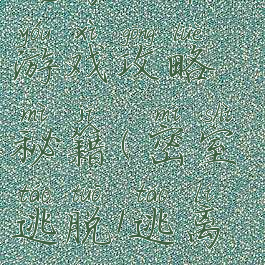 yóu xì gōng lüè
游戏攻略
mì jí mì shì
秘籍(密室
táo tuō táo lí
逃脱/逃离